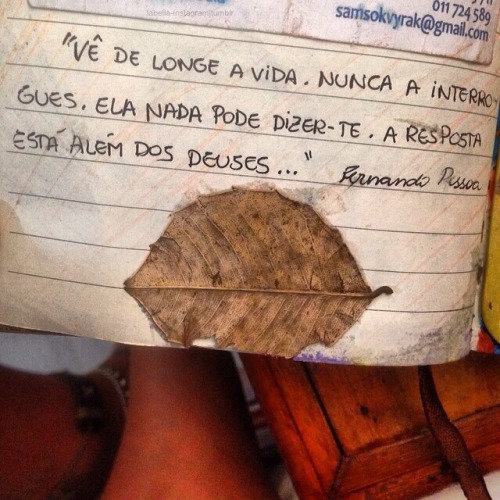 011 724 589
samsokvyrak@gmail.com
"VÊ DE LONGE A VIDA. NUNCA A INTERRO
GUES. ELA NADA PODE DIZER-TE. A RESPOSTA
ESTÁ ALÉM DOS DEUSES..."
Fernando Pessoa